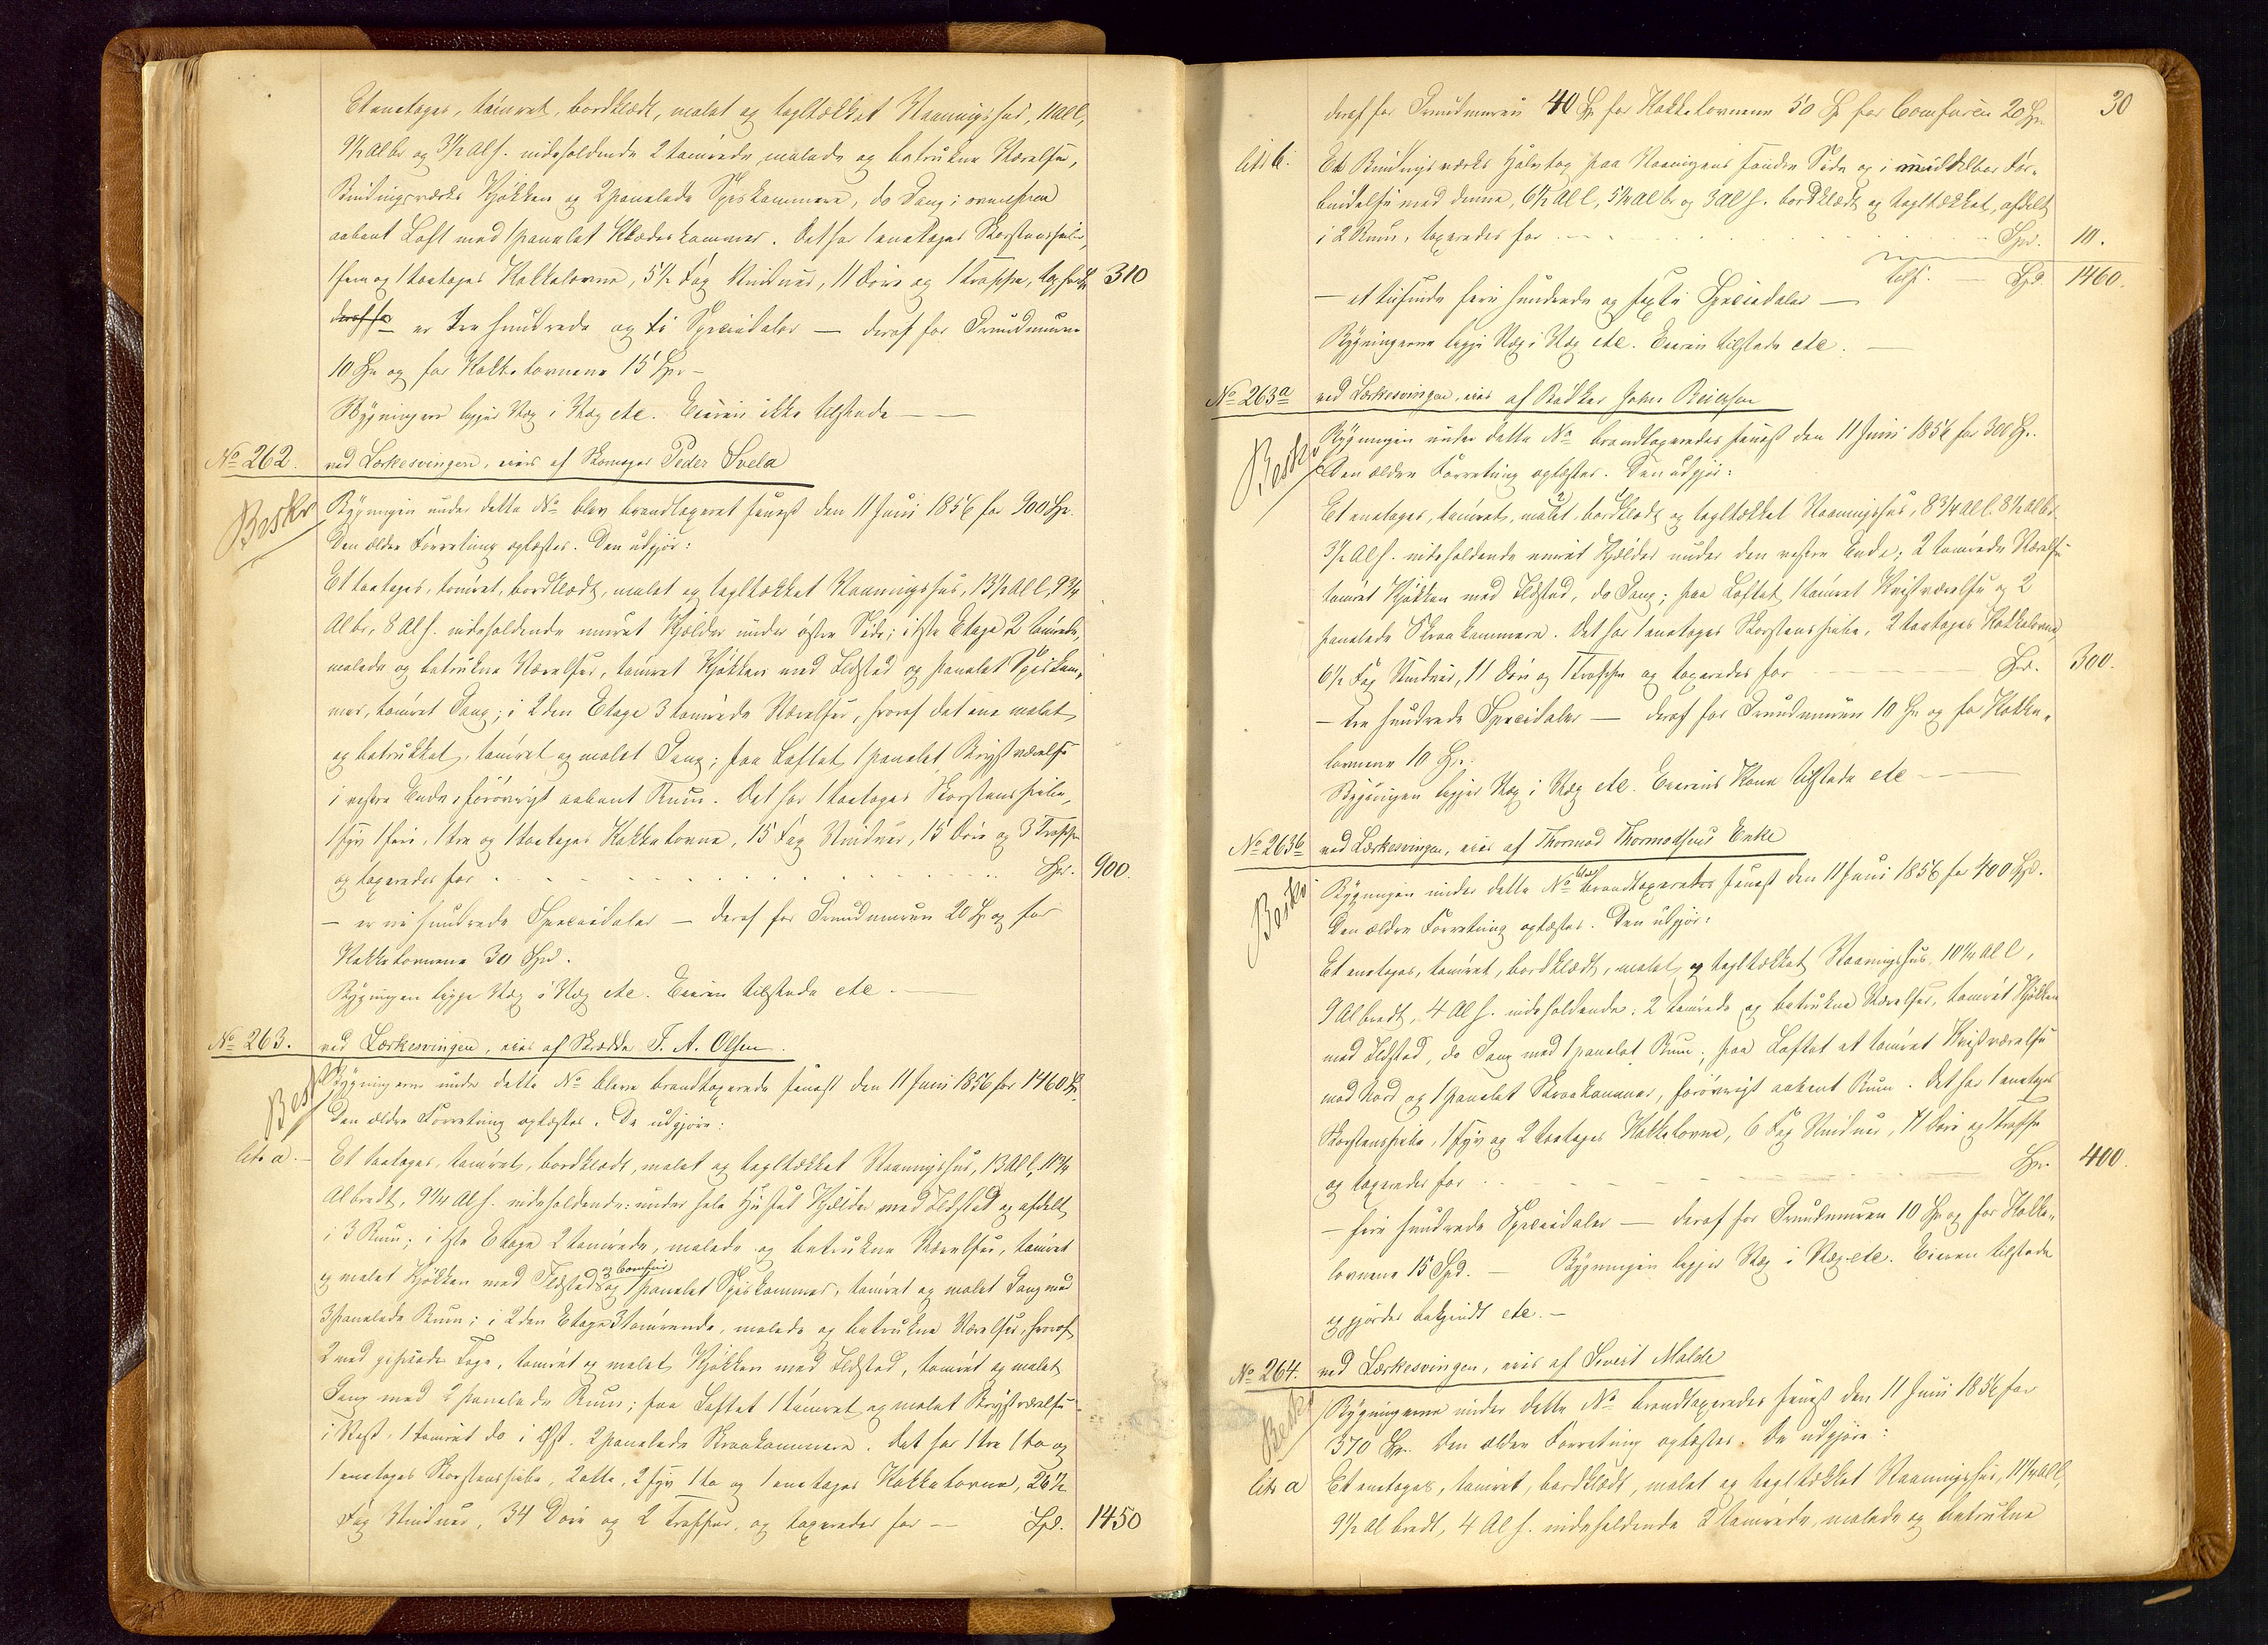 Et enetages, tømret, bordklædt, malet og tegltækket Vaaningshus, 11 Al l,
9½ Al br og 3½ Al h. indeholdende 2 tømrede, malede og betrukne Værelser,
Bindingsværks Kjøkken og 2 panelede Spiskammere, do Gang; ovenpaa
aabent Loft med 1 panelet Klædeskammer. Det har 1 enetages Skorstenspibe,
1 fem og 1 toetages Kakkelovne, 5½ Fag Vinduer, 11 Døre og 1 Trappe, tax. for Spd 310
deraf for er tre hundrede og ti Speciedaler — deraf for Grundmuren
10 Spd og for Kakkelovnene 15 Spd —
Bygningen ligger Væg i Væg etc. Eieren ikke tilstede —
No 262. ved Lærkesvingen, eies af Skomager Peder Svela
Beskr Bygningen under dette No blev brandtaxeret senest den 11 Juni 1856 for 900 Spd.
Den ældre Forretning oplæstes. Den udgjør:
Et toetages, tømret, bordklædt, malet og tegltækket Vaaningshus, 13½ Al l, 9¾
Al br, 8 Al h. indeholdende muret Kjælder under østre Side; i 1ste Etage 2 tømrede,
malede og betrukne Værelser, tømret Kjøkken med Ildsted og panelet Spiskam-
mer, tømret Gang; i 2den Etage 3 tømrede Værelser, hvoraf det ene malet
og betrukket, tømret og malet Gang; paa Loftet 1 panelet Kvistværelse
i vestre Ende, forøvrigt aabent Rum. Det har 1 toetages Skorstenspibe,
1 syv 1 fire, 1 tre og 1 toetages Kakkelovne, 15 Fag Vinduer, 15 Døre og 3 Trapper
og taxeredes for Spd. 900.
— er ni hundrede Speciedaler — deraf for Grundmuren 20 Spd og for
Kakkelovnene 30 Spd.
Bygningen ligger Væg i Væg etc. Eieren tilstede etc. —
No 263. ved Lærkesvingen, eies af Skrædder T. A. Olsen.
Besk Bygningerne under dette No bleve brandtaxerede senest den 11 Juni 1856 for 1460 Spd
Den ældre Forretning oplæstes. De udgjøre:
litr a. — Et toetages, tømret, bordklædt, malet og tegltækket Vaaningshus, 13 Al l, 11¾
Al bredt, 9¼ Al h. indeholdende: under hele Huset Kjælder med Ildsted og afdelt
i 3 Rum; i 1ste Etage 2 tømrede, malede og betrukne Værelser, tømret
og malet Kjøkken med Ildsted og Comfur og 1 panelet Spiskammer, tømret og malet Gang med
3 panelede Rum; i 2den Etage 3 tømrede, malede og betrukne Værelser, hvoraf
2 med gipsede Tage, tømret og malet Kjøkken med Ildsted, tømret og malet
Gang med 2 panelede Rum; paa Loftet 1 tømret og malet Kvistværelse
i Vest, 1 tømret do i Øst, 2 panelede Skraakammere. Det har 1 tre 1 to og
1 enetages Skorstenspibe, 2 otte, 2 syv 1 to og 1 enetages Kakkelovne, 26½
Fag Vinduer, 34 Døre og 2 Trapper, og taxeredes for — Spd. 1450
30
deraf for Grundmuren 40 Spd for Kakkelovnene 50 Spd for Comfuren 20 Spd.
litr b. Et Bindingsværks Halvtag paa Vaaningens søndre Side og i umiddelbar For-
bindelse med denne, 6½ Al l, 5½ Al br og 3 Al h. bordklædt og tegltækket, afdelt
i 2 Rum, taxeredes for Spd. 10.
tils. — Spd 1460.
— et tusinde fire hundrede og sexti Speciedaler —
Bygningerne ligge Væg i Væg etc. Eieren tilstede etc. —
No 263a ved Lærkesvingen, eies af Bødker Johan Reiersen
Beskr Bygningen under dette No brandtaxeredes senest den 11 Juni 1856 for 300 Spd.
Den ældre Forretning oplæstes. Den udgjør:
Et enetages, tømret, malet, bordklædt og tegltækket Vaaningshus, 8¾ Al l. 8½ Al br.
3½ Al h. indeholdende muret Kjælder under den vestre Ende; 2 tømrede Værelser
tømret Kjøkken med Ildsted, do Gang; paa Loftet 1 tømret Kvistværelse og 2
panelede Skraakammere. Det har 1 enetages Skorstenspibe, 2 toetages Kakkelovne,
6½ Fag Vinduer, 11 Døre og 1 Trappe og taxeredes for Spd. 300.
— tre hundrede Speciedaler — deraf for Grundmuren 10 Spd og for Kakke-
lovnene 10 Spd.
Bygningen ligger Væg i Væg etc. Eierens Kone tilstede etc —
No 263b ved Lærkesvingen, eies af Thormod Thormodsens Enke
Beskr Bygningen under dette No blev brandtaxeret senest den 11 Juni 1856 for 400 Spd.
Den ældre Forretning oplæstes. Den udgjør:
Et enetages, tømret, bordklædt, malet og tegltækket Vaaningshus, 10¼ Al l,
9 Al bredt, 4 Al h. indeholdende: 2 tømrede og betrukne Værelser, tømret Kjøkken
med Ildsted, do Gang med 1 panelet Rum; paa Loftet et tømret Kvistværelse
mod Nord og 1 panelet Skraakammer, forøvrigt aabent Rum. Det har 1 enetages
Skorstenspibe, 1 syv og 2 toetages Kakkelovne, 6 Fag Vinduer, 11 Døre og 1 Trappe
og taxeredes for Spd. 400.
— fire hundrede Speciedaler — deraf for Grundmuren 10 Spd og for Kakke-
lovnene 15 Spd. — Bygningen ligger Væg i Væg etc. Eieren tilstede
og gjordes bekjendt etc. —
No 264. ved Lærkesvingen, eies af Sivert Molde
Beskr Bygningerne under dette No brandtaxeredes senest den 11 Juni 1856 for
370 Spd. Den ældre Forretning oplæstes. De udgjøre:
litr a Et enetages, tømret, bordklædt, malet og tegltækket Vaaningshus, 11¼ Al l,
9½ Al bredt, 4 Al h. indeholdende 2 tømrede, malede og betrukne